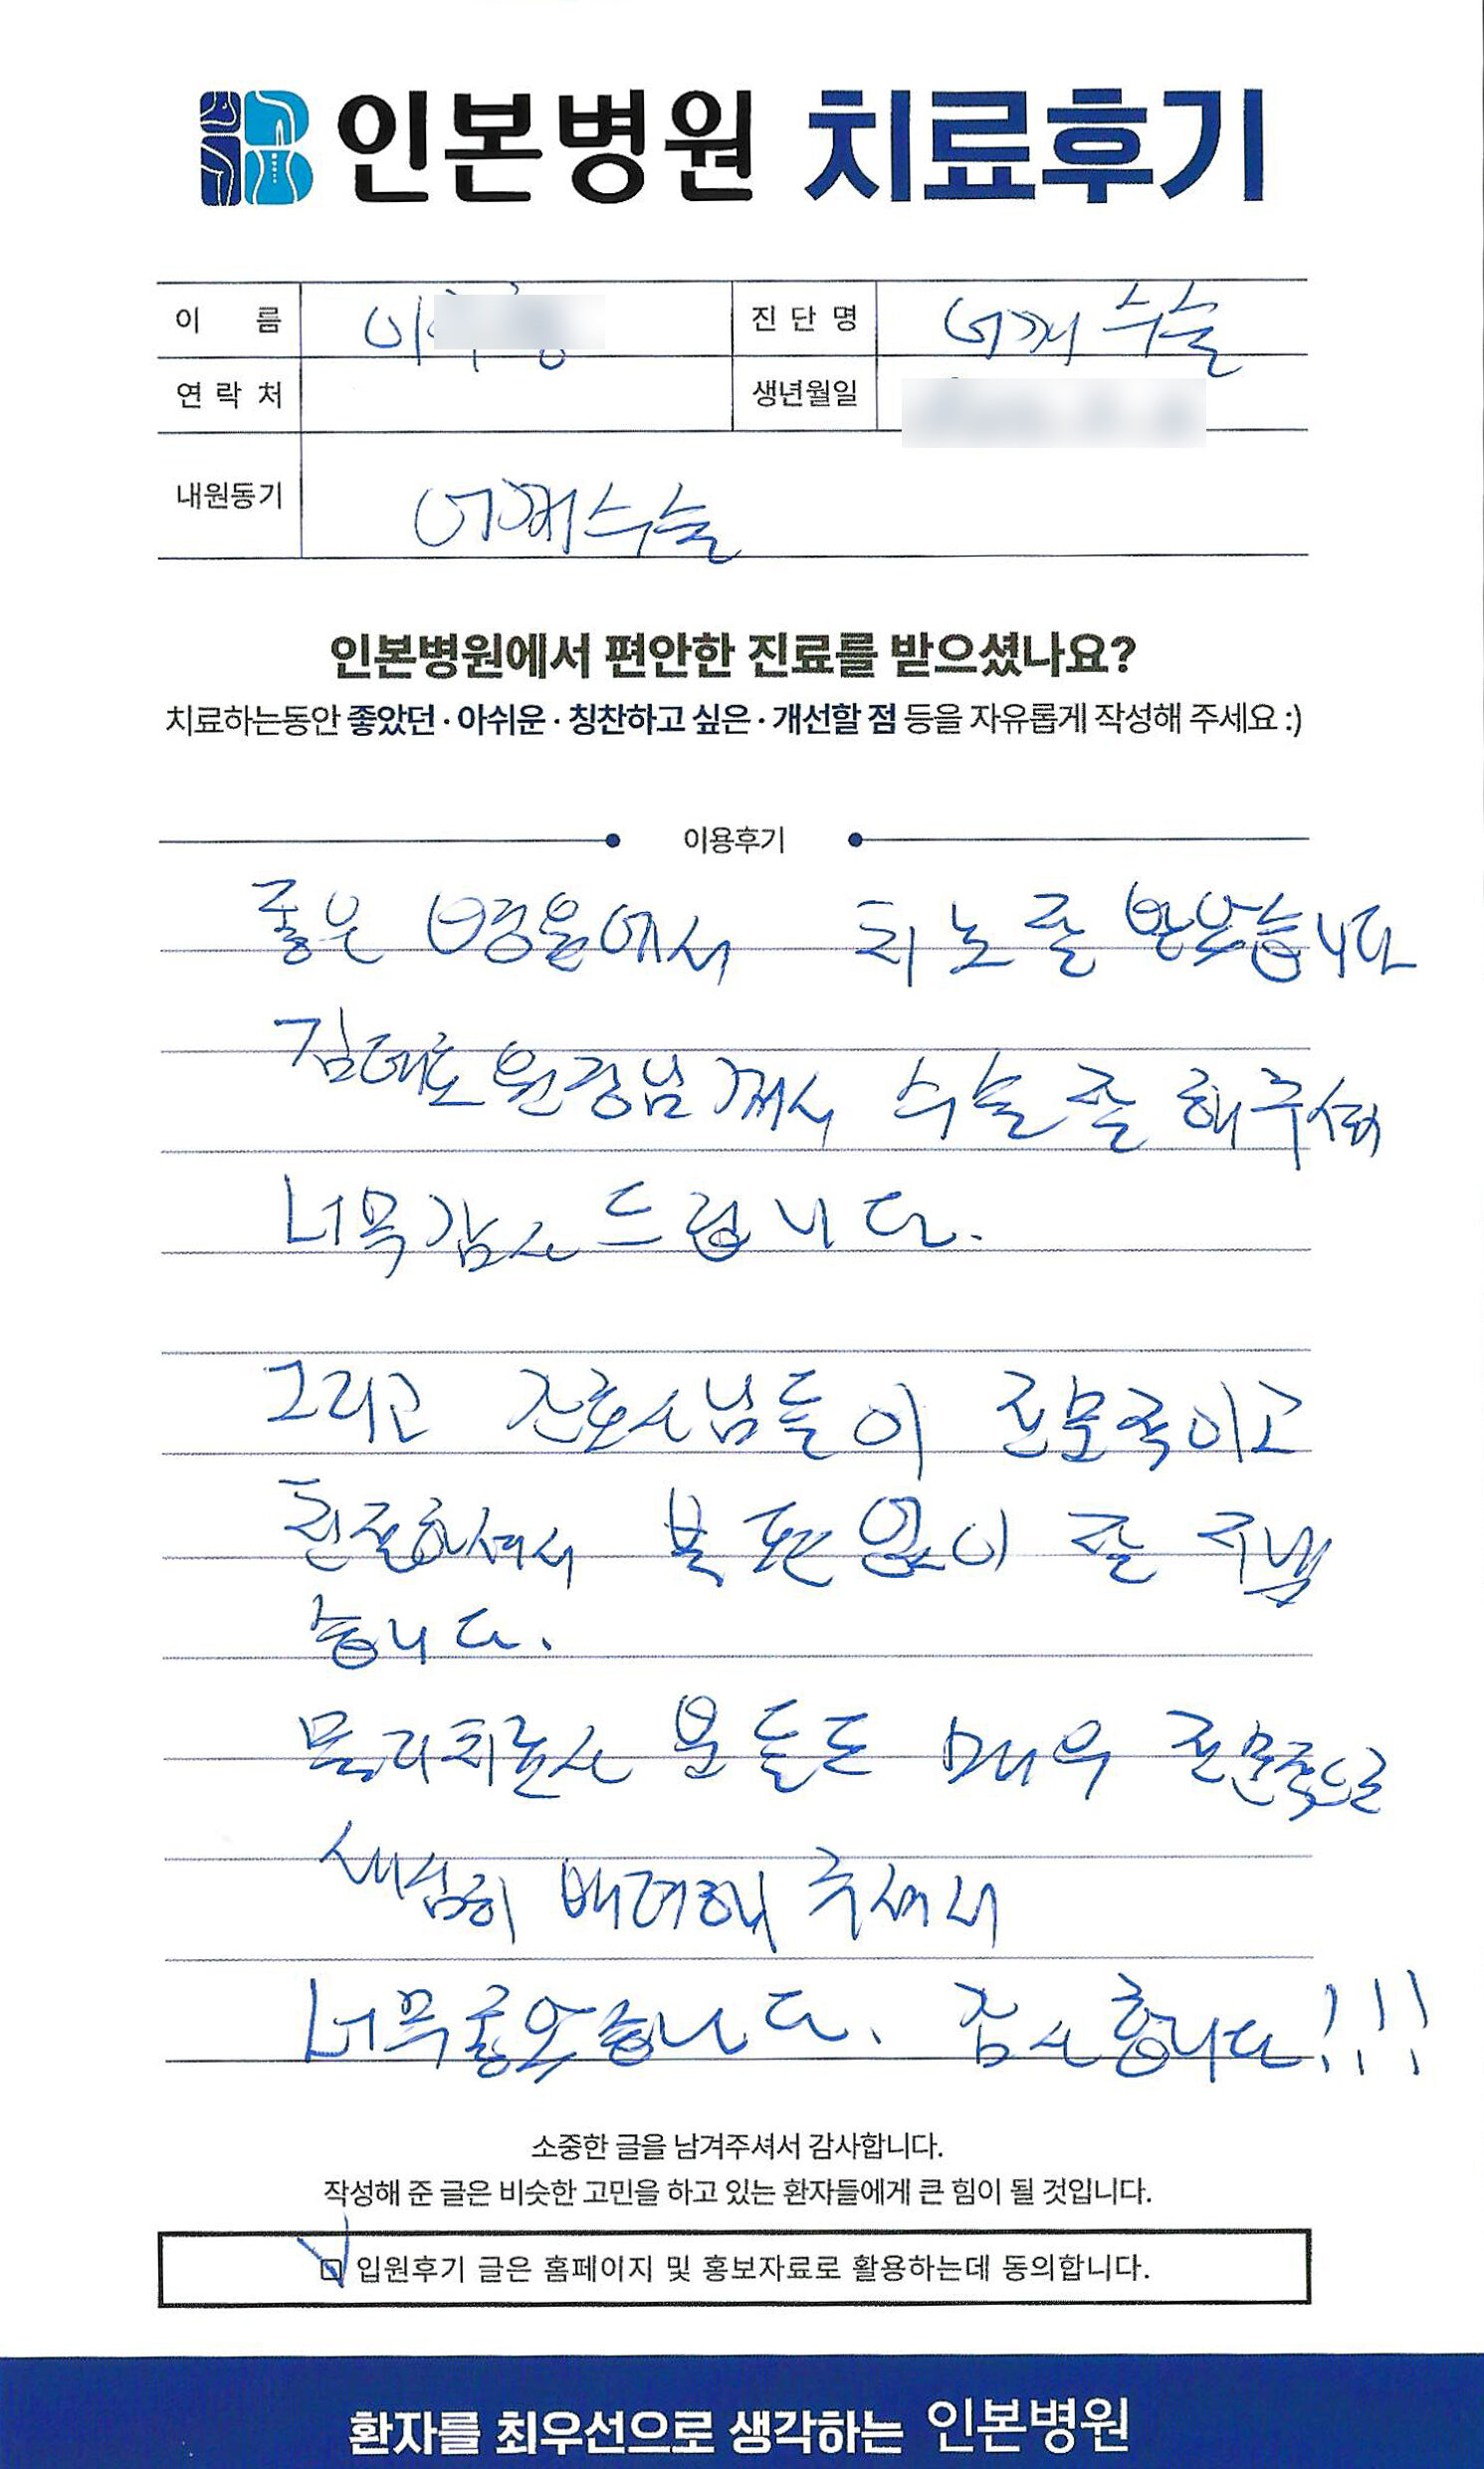 인본병원 치료후기
이 름 이 진 단 명 어깨수술
연 락 처 생년월일
내원동기 어깨수술
인본병원에서 편안한 진료를 받으셨나요?
치료하는동안 좋았던 · 아쉬운 · 칭찬하고 싶은 · 개선할 점 등을 자유롭게 작성해 주세요 :)
이용후기
좋은 병원에서 치료 잘 받았습니다
원장님께서 수술 잘 해주셔
너무 감사드립니다.
그리고 간호사님들이 전문적이고
친절하셔서 불편없이 잘 지냈
습니다.
물리치료사 분들도 매우 전문적으로
세심히 배려해 주셔서
너무좋았습니다. 감사합니다!!!
소중한 글을 남겨주셔서 감사합니다.
작성해 준 글은 비슷한 고민을 하고 있는 환자들에게 큰 힘이 될 것입니다.
입원후기 글은 홈페이지 및 홍보자료로 활용하는데 동의합니다.
환자를 최우선으로 생각하는 인본병원